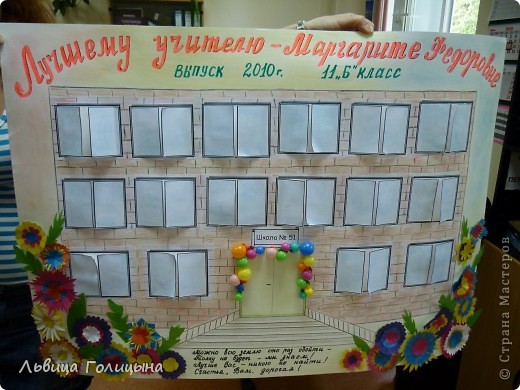 Лучшему учителю - Маргарите Федоровне
Выпуск 2010г. 11 „Б" класс
Школа № 51
Можно всю землю сто раз обойти -
Толку не будет - мы знаем!
Лучше Вас - никого не найти!
Счастья, Вам, дорогая!
Львица Голицына
© Страна Мастеров